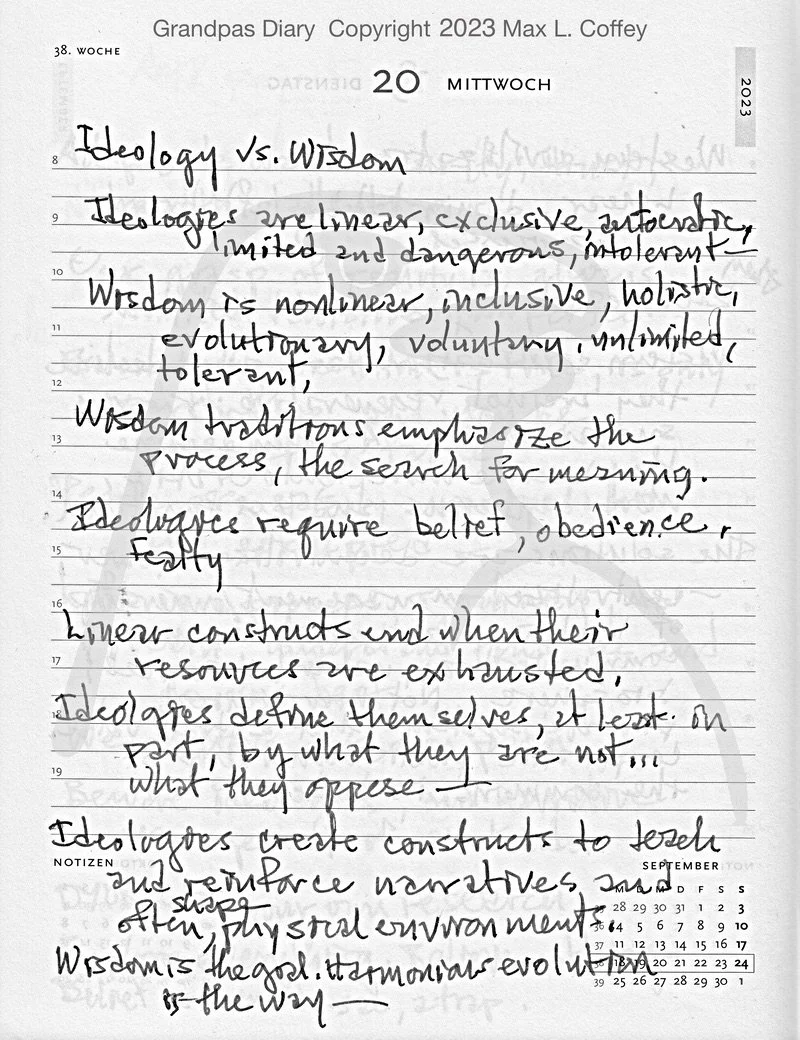 Grandpas Diary Copyright 2023 Max L. Coffey
38. WOCHE
20 MITTWOCH
2023
8 Ideology vs. Wisdom
9 Ideologies are linear, exclusive, autocratic,
limited and dangerous, intolerant—
10 Wisdom is nonlinear, inclusive, holistic,
11 evolutionary, voluntary, unlimited,
12 tolerant,
13 Wisdom traditions emphasize the
process, the search for meaning.
14 Ideologies require belief, obedience,
15 Fealty
16 Linear constructs end when their
17 resources are exhausted.
18 Ideolgies define themselves, at least in
part, by what they are not...
19 what they oppose —
Ideologies create constructs to teach
NOTIZEN
SEPTEMBER
and reinforce narratives and
shape
often, physical environments.
Wisdom is the goal. Harmonious evolution
is the way —
M D M D F S S
28 29 30 31 1 2 3
36 4 5 6 7 8 9 10
37 11 12 13 14 15 16 17
38 18 19 20 21 22 23 24
39 25 26 27 28 29 30 1